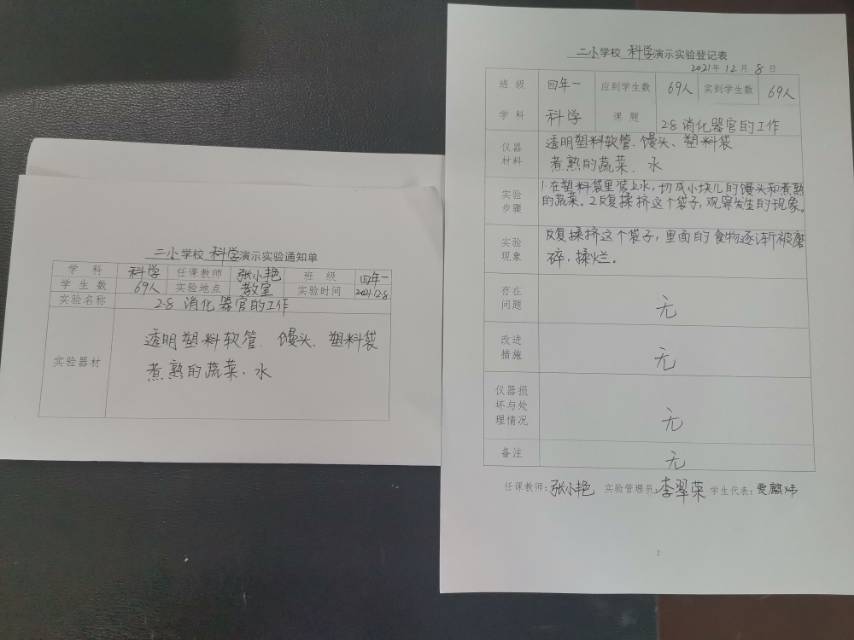 二小学校 科学演示实验通知单
学科 科学 任课教师 张小艳 班级 四年一
学生数 69人 实验地点 教室 实验时间 2021.12.8
实验名称 2·8 消化器官的工作
实验器材 透明塑料软管、馒头、塑料袋
煮熟的蔬菜、水
二小学校 科学演示实验登记表
2021年12月8日
班级 四年一 应到学生数 69人 实到学生数 69人
学科 科学 课题 2·8 消化器官的工作
仪器材料 透明塑料软管、馒头、塑料袋
煮熟的蔬菜、水
实验步骤 1.在塑料袋里装上水,切成小块儿的馒头和煮熟
的蔬菜。2.反复揉挤这个袋子,观察发生的现象。
实验现象 反复揉挤这个袋子,里面的食物逐渐被磨
碎,揉烂。
存在问题 无
改进措施 无
仪器损坏与处理情况 无
备注 无
任课教师:张小艳 实验管理员:李翠荣 学生代表:
1